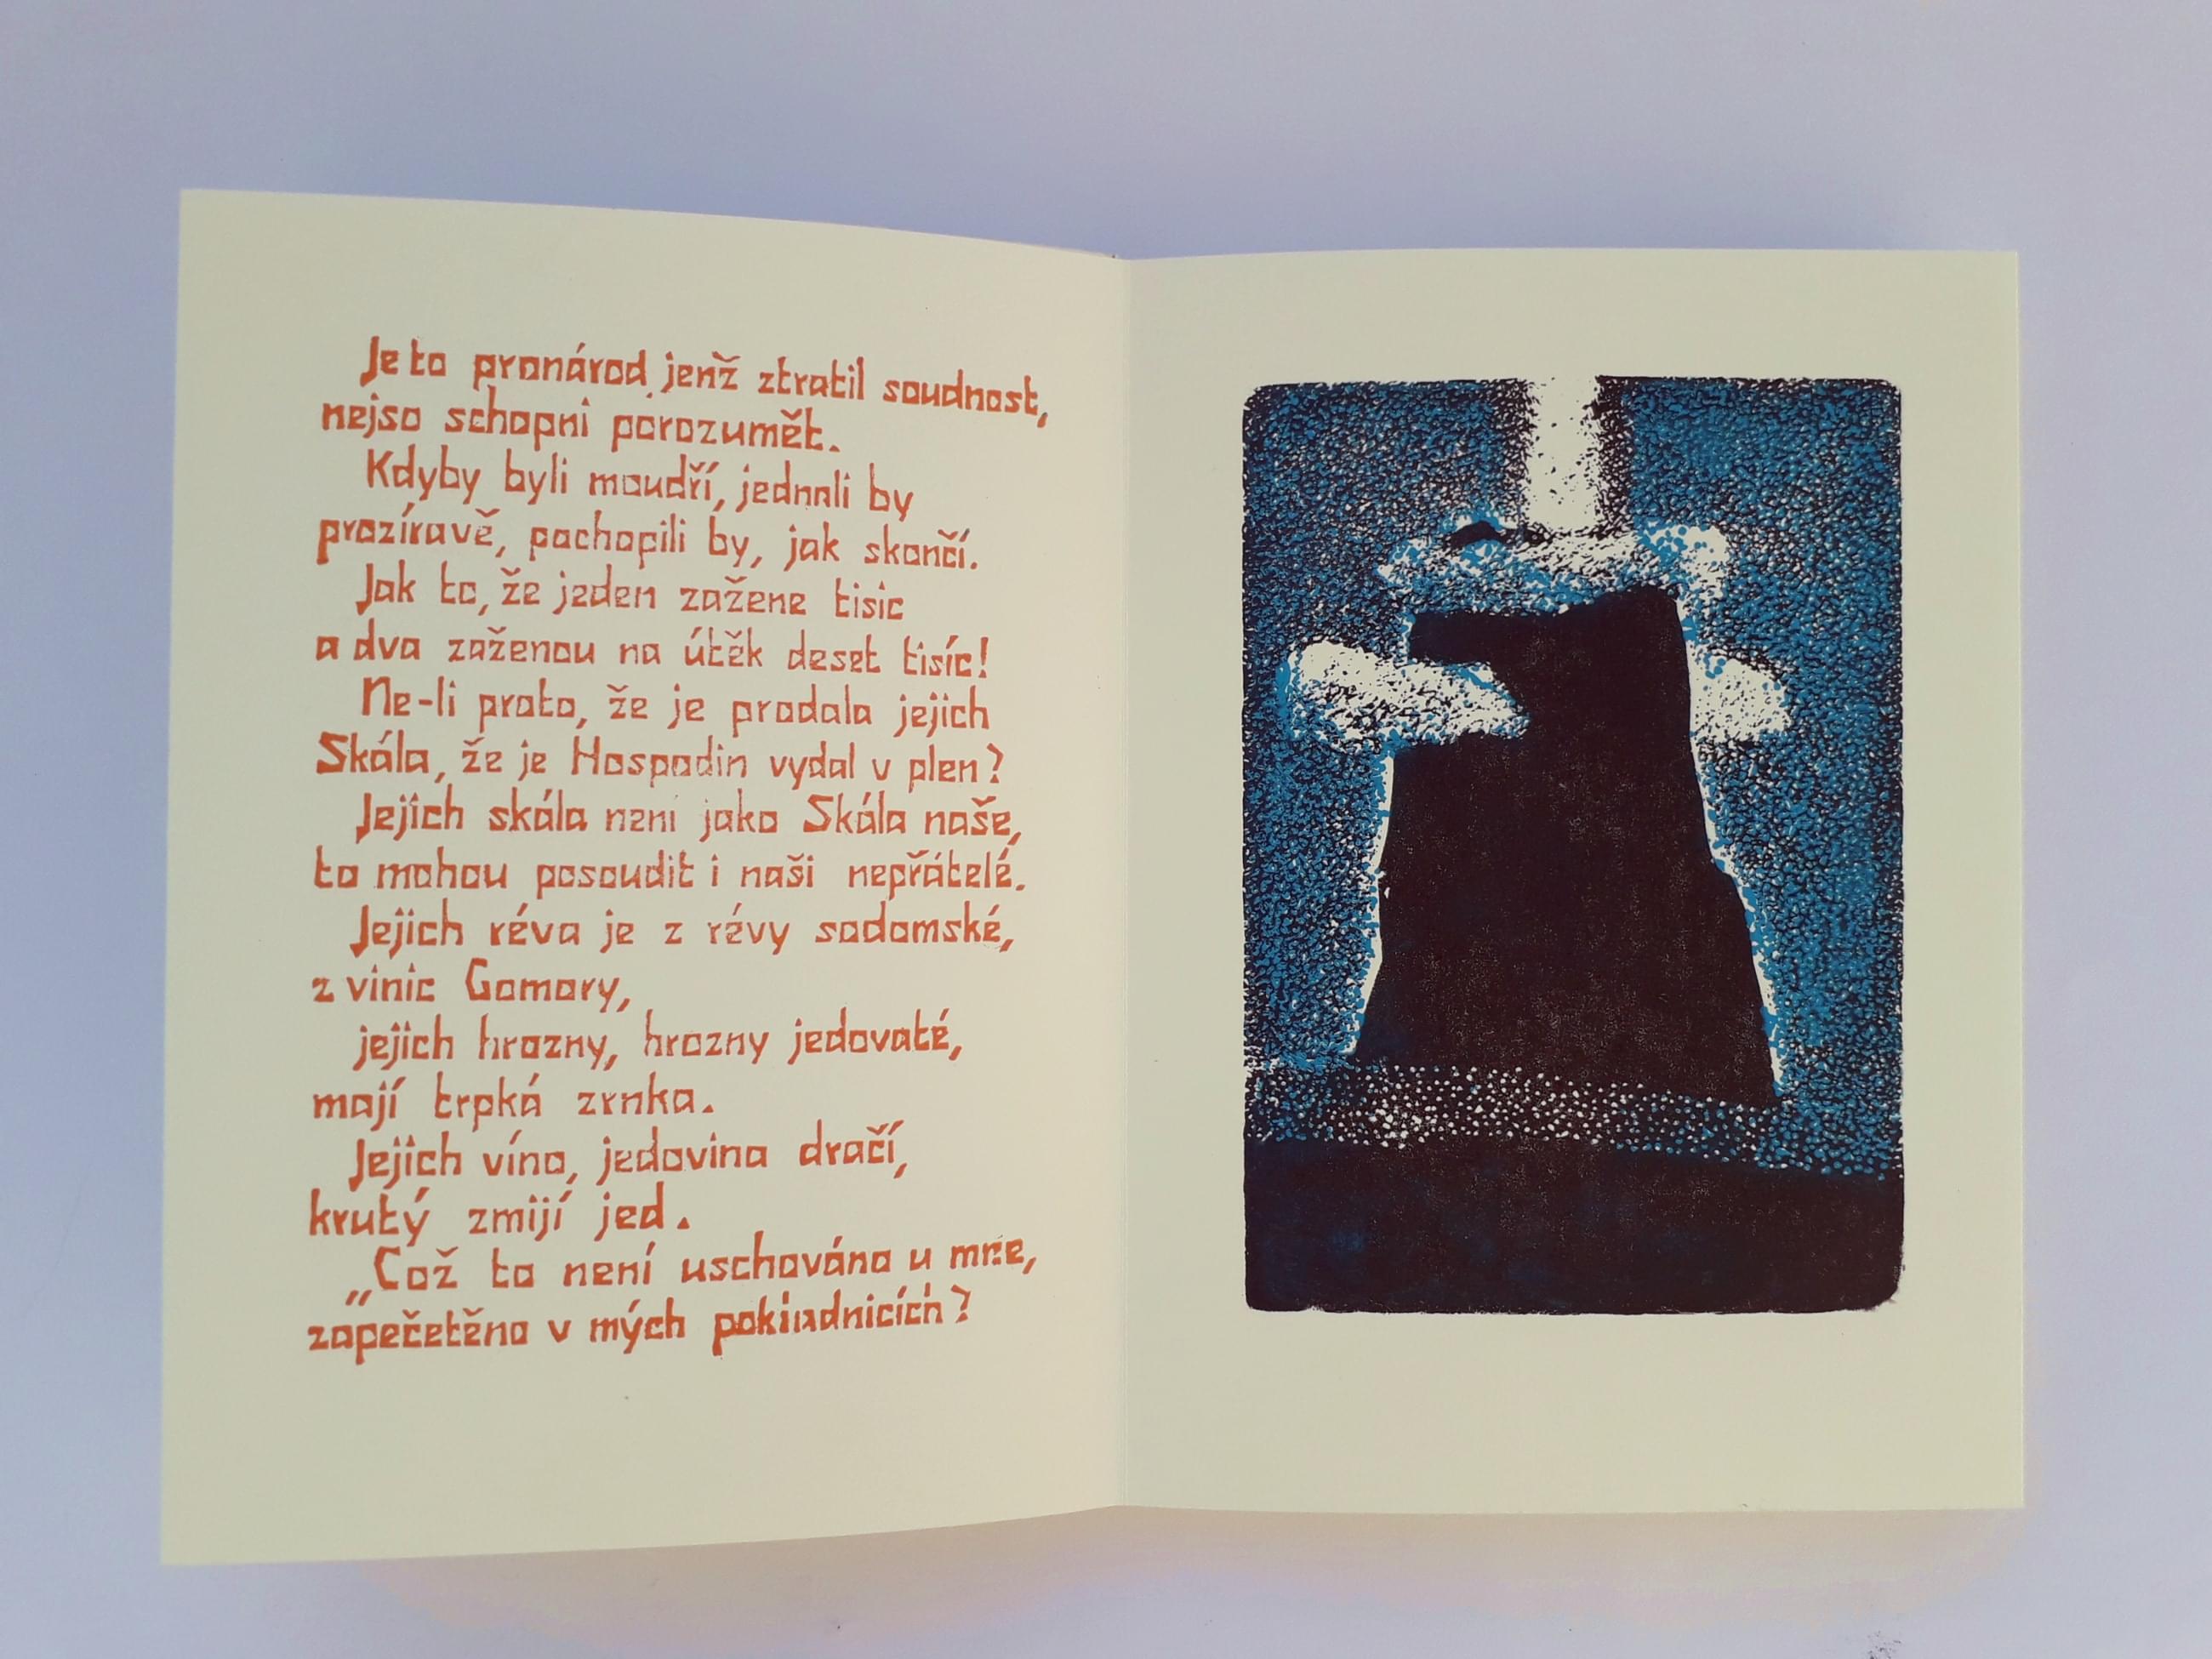 Je to pronárod, jenž ztratil soudnost,
nejso schopni porozumět.
Kdyby byli moudří, jednali by
prozíravě, pochopili by, jak skončí.
Jak to, že jeden zažene tisic
a dva zaženou na útěk deset tisíc!
Ne-li proto, že je prodala jejich
Skála, že je Hospodin vydal v plen?
Jejich skála neni jako Skála naše,
to mohou posoudit i naši nepřátelé.
Jejich réva je z révy sodomské,
z vinic Gomory,
jejich hrozny, hrozny jedovaté,
mají trpká zrnka.
Jejich víno, jedovina dračí,
krutý zmijí jed.
„Což to není uschováno u mne,
zapečetěno v mých pokladnicích?